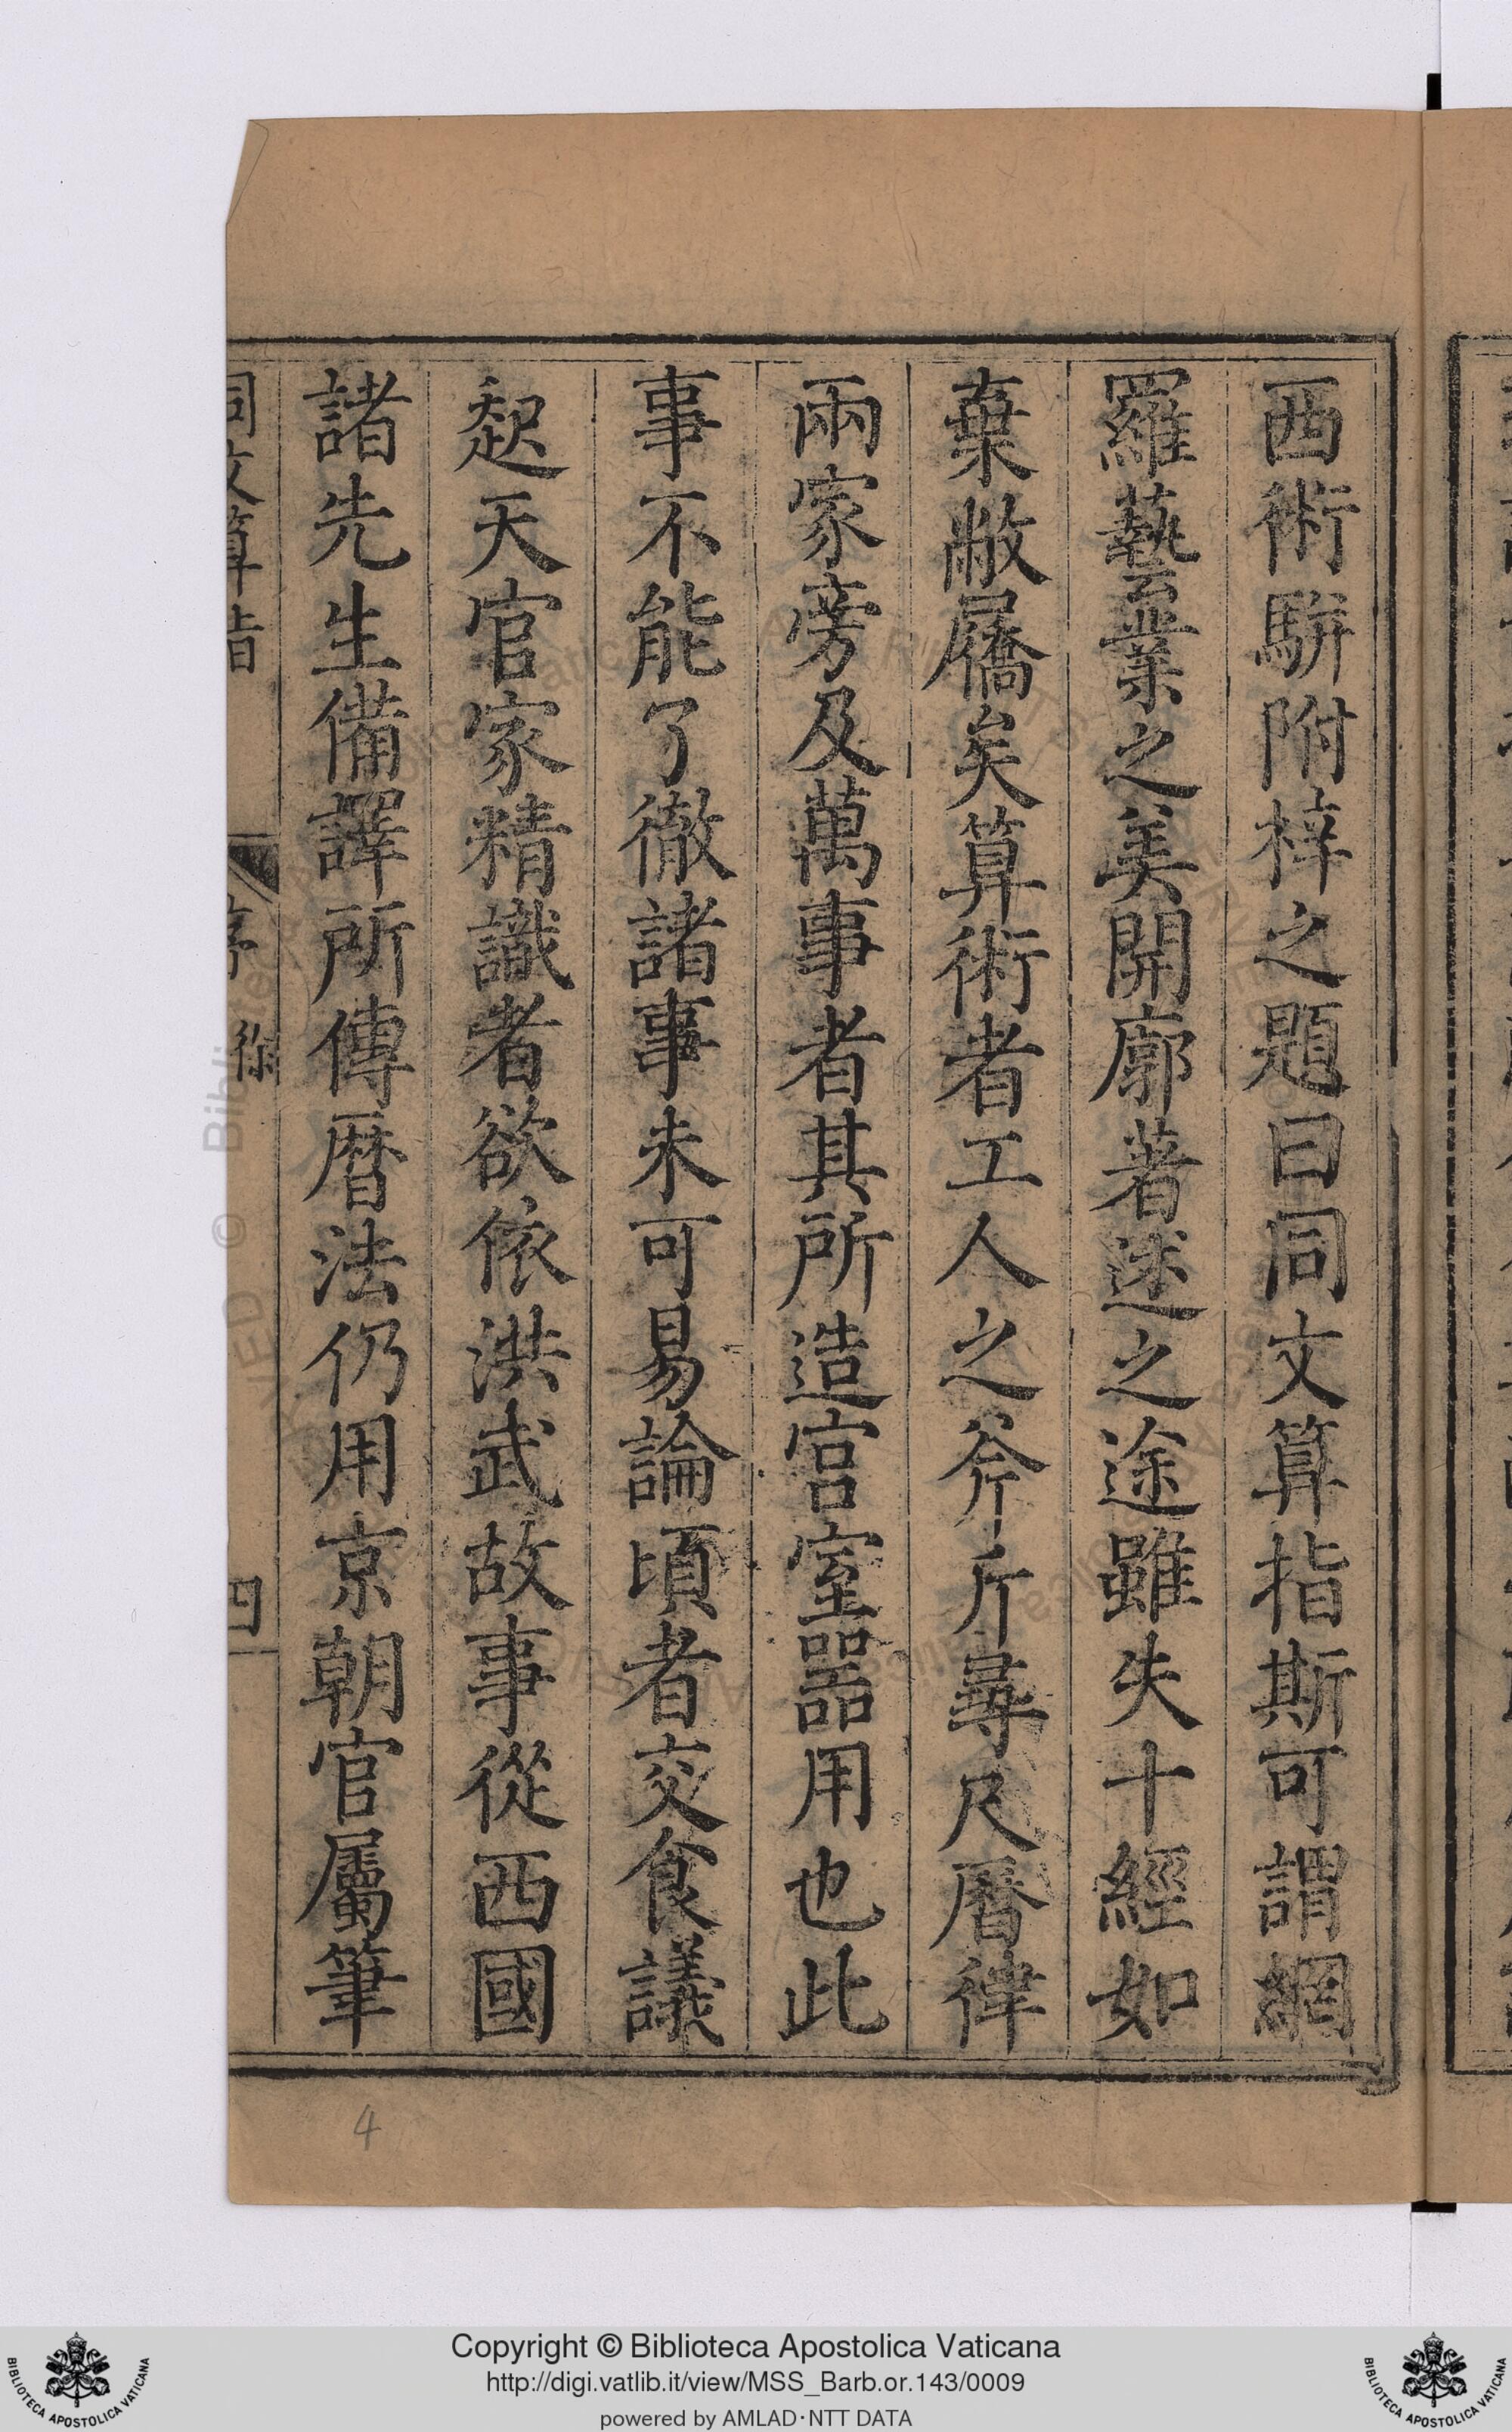 西術駢附梓之題曰同文算指斯可謂網
羅藝業之美開廓著述之途雖失十經如
棄敝屩矣算術者工人之斧斤尋尺曆律
兩家旁及萬事者其所造宮室器用也此
事不能了徹諸事未可易論頃者交食議
起天官家精識者欲依洪武故事從西國
諸先生備譯所傳曆法仍用京朝官屬筆
同文算指
序
徐
四
4
Copyright © Biblioteca Apostolica Vaticana
http://digi.vatlib.it/view/MSS_Barb.or.143/0009
powered by AMLAD·NTT DATA
BIBLIOTECA APOSTOLICA VATICANA
BIBLIOTECA APOSTOLICA VATICANA